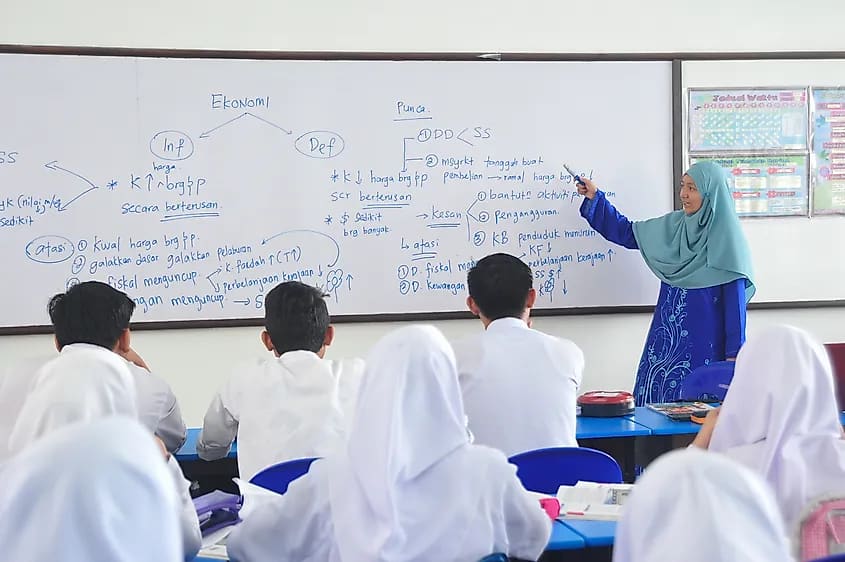 Ekonomi
Inf
Def
SS
harga
* K↑ brg & p
secara berterusan.
yk (nilai m/e
sedikit
atasi
① kwal harga brg & p.
② galakkan dasar galakkan pelaburan
fiskal menguncup
K. faedah ↑ (T↑)
perbelanjaan kerajaan ↓
menguncup → S
Punca.
① DD < SS
② msyrkt tangguh buat
pembelian → ramal harga brg
* K↓ harga brg & p
scr berterusan
* $ sedikit
brg banyak.
→ Kesan
① bantut aktiviti
② pengangguran.
③ KB penduduk menurun
↳ atasi
① D. fiskal
KF↓
perbelanjaan kerajaan ↑
② D. kewangan
SS $ ↑
Jadual Waktu